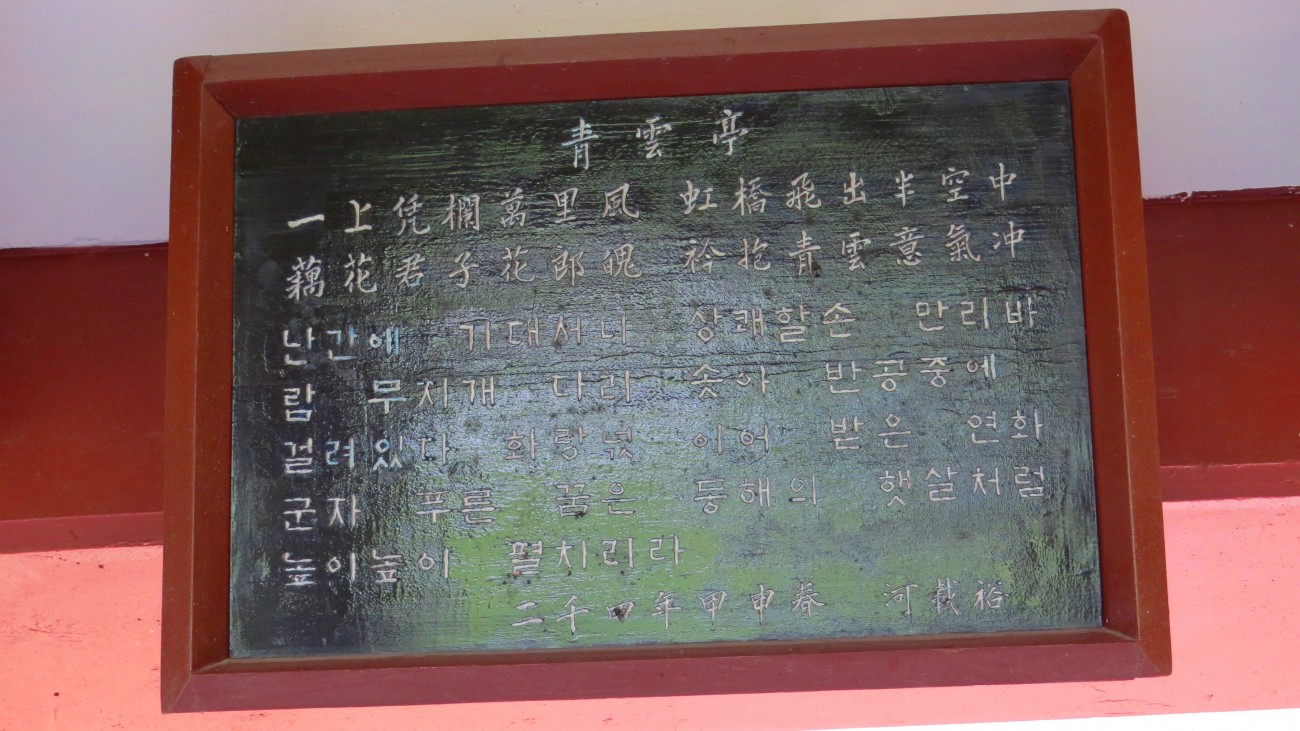 青雲亭
一上凭欄萬里風 虹橋飛出半空中
藕花君子花郎魄 衿抱青雲意氣沖
난간에 기대서니 상쾌할손 만리바
람 무지개 다리 솟아 반공중에
걸려있다 화랑넋 이어 받은 연화
군자 푸른 꿈은 동해의 햇살처럼
높이높이 펼치리라
二千四年甲申春 河載裕